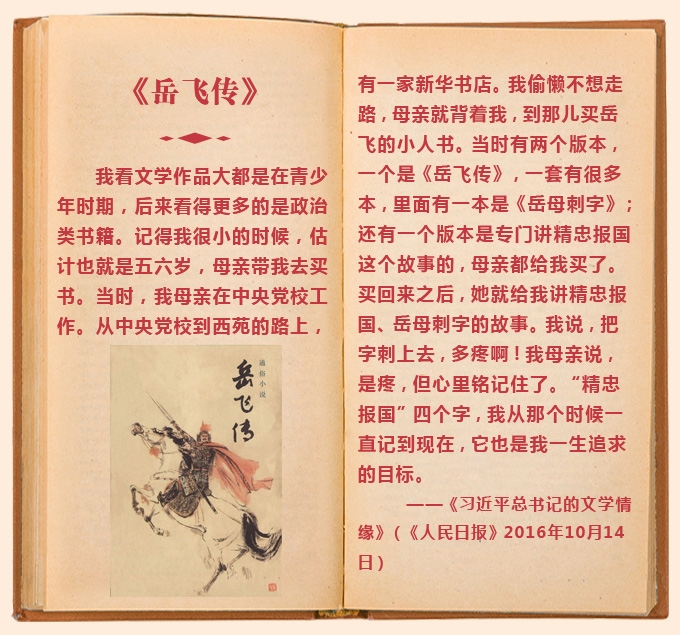 《岳飞传》
我看文学作品大都是在青少
年时期，后来看得更多的是政治
类书籍。记得我很小的时候，估
计也就是五六岁，母亲带我去买
书。当时，我母亲在中央党校工
作。从中央党校到西苑的路上，
通俗小说
岳飞传
有一家新华书店。我偷懒不想走
路，母亲就背着我，到那儿买岳
飞的小人书。当时有两个版本，
一个是《岳飞传》，一套有很多
本，里面有一本是《岳母刺字》；
还有一个版本是专门讲精忠报国
这个故事的，母亲都给我买了。
买回来之后，她就给我讲精忠报
国、岳母刺字的故事。我说，把
字刺上去，多疼啊！我母亲说，
是疼，但心里铭记住了。“精忠
报国”四个字，我从那个时候一
直记到现在，它也是我一生追求
的目标。
——《习近平总书记的文学情
缘》（《人民日报》2016年10月14
日）